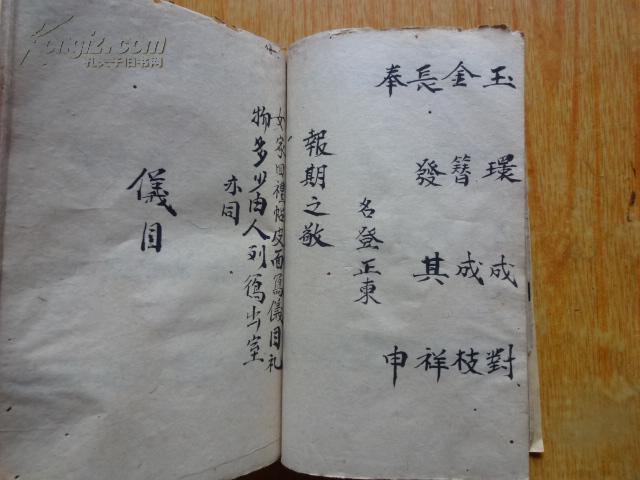 玉環成對
金簪成枝
長發其祥
奉申
名登正東
報期之敬
女家回禮帖皮面寫儀目礼
物多少由人列寫出室
亦同
儀目
Kongfz.com
孔夫子旧书网